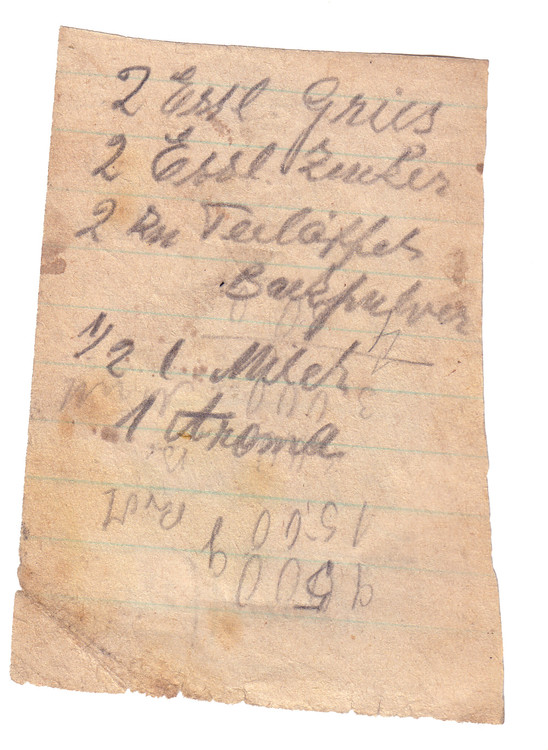 2 Essl Gries
2 Essl. Zucker
2 Kn Teelöffel
Backpulver
1/2 l Milch
1 Aroma
1500 Brot
3000